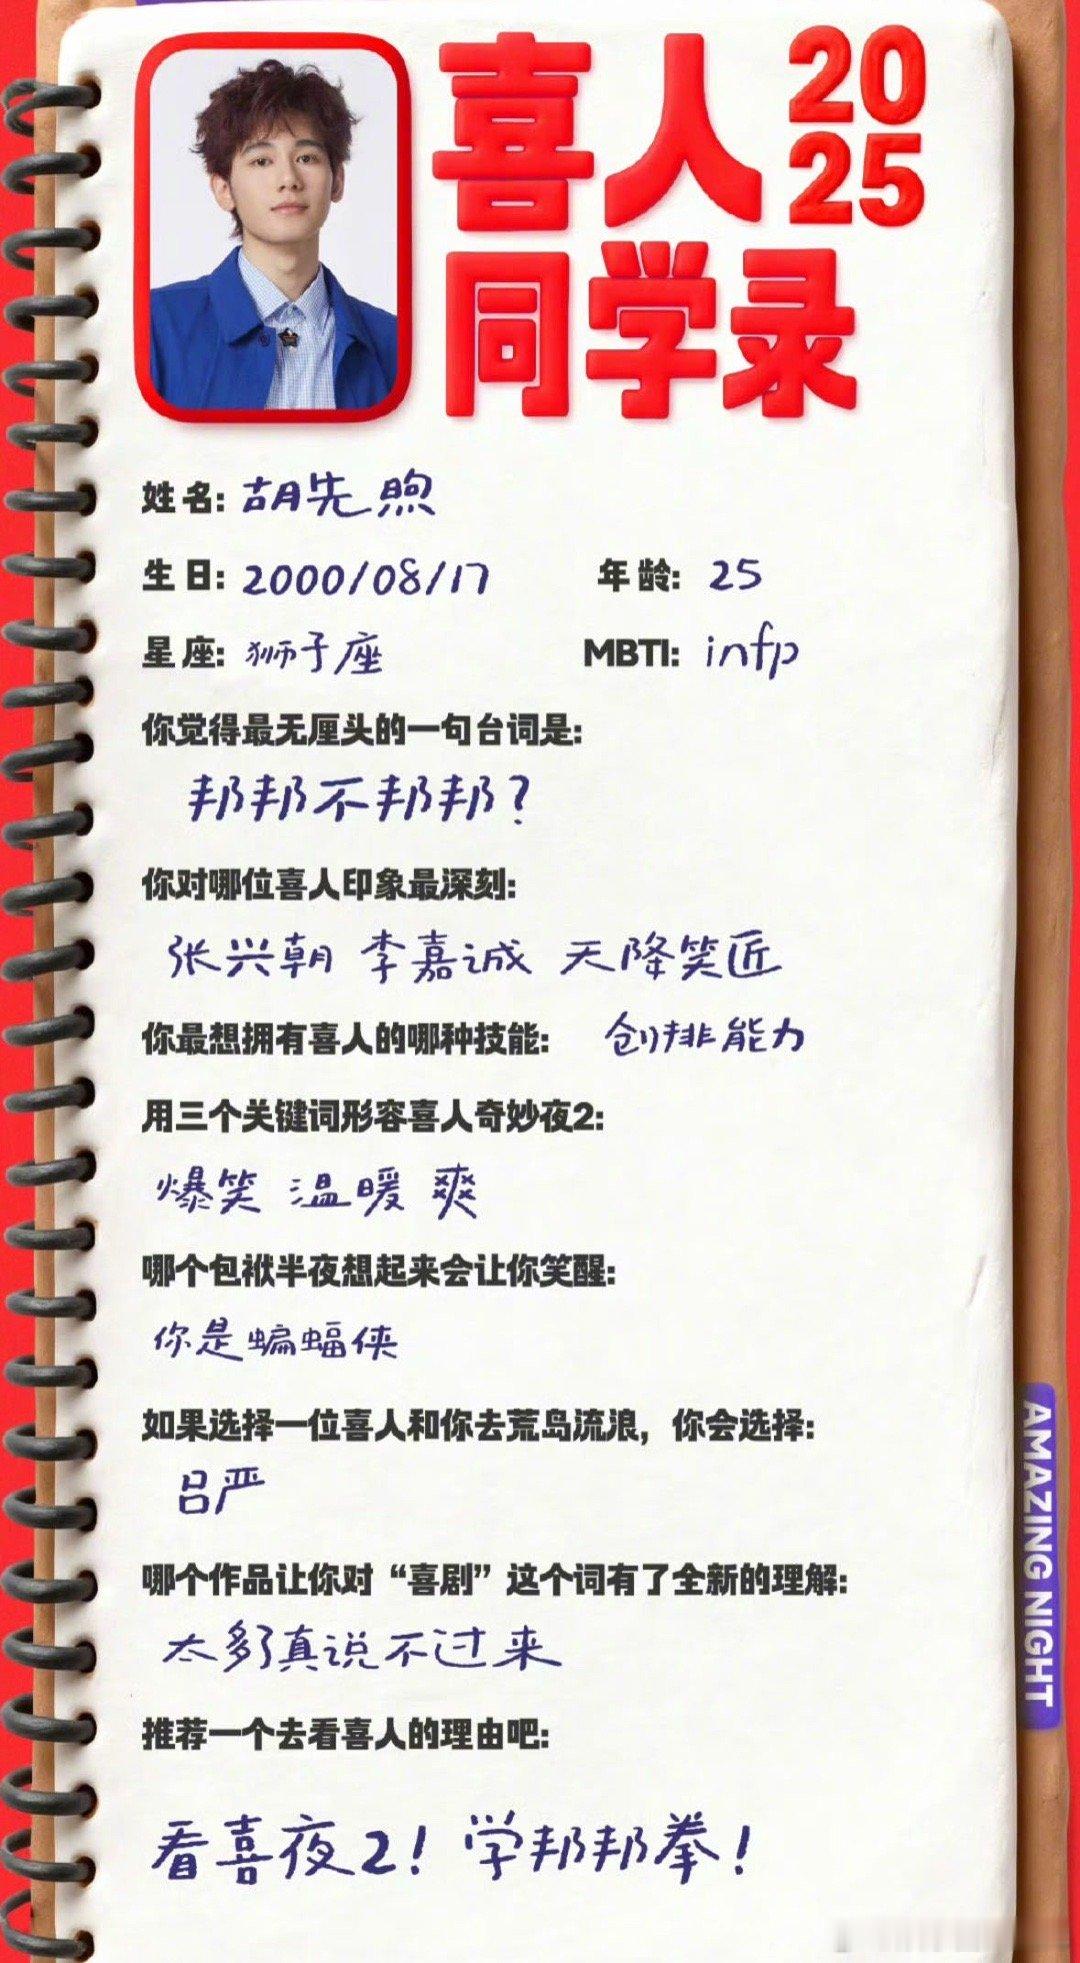 喜人 20
25
同学录
姓名: 胡先煦
生日: 2000/08/17 年龄: 25
星座: 狮子座 MBTI: infp
你觉得最无厘头的一句台词是:
邦邦不邦邦?
你对哪位喜人印象最深刻:
张兴朝 李嘉诚 天降笑匠
你最想拥有喜人的哪种技能: 创排能力
用三个关键词形容喜人奇妙夜2:
爆笑 温暖 爽
哪个包袱半夜想起来会让你笑醒:
你是蝙蝠侠
如果选择一位喜人和你去荒岛流浪，你会选择:
吕严
哪个作品让你对“喜剧”这个词有了全新的理解:
太多了真说不过来
推荐一个去看喜人的理由吧:
看喜夜2! 学邦邦拳!
AMAZING NIGHT